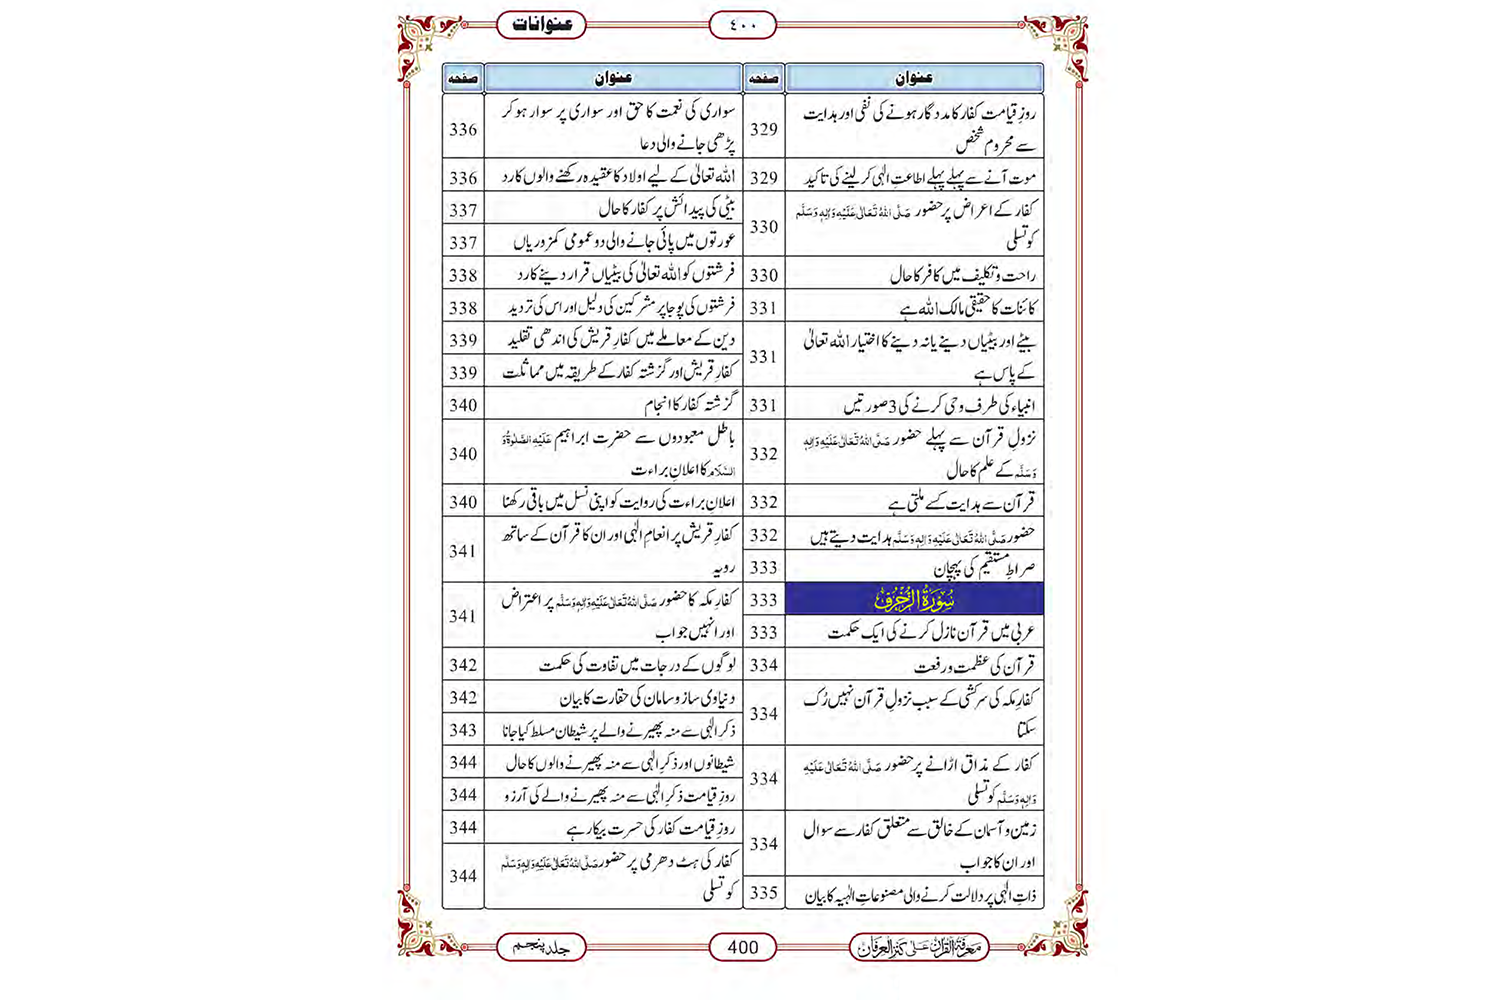 عنوانات
٤٠٠
عنوان
صفحہ
روزِ قیامت کفار کا مددگار ہونے کی نفی اور ہدایت
سے محروم شخص
329
موت آنے سے پہلے پہلے اطاعتِ الٰہی کر لینے کی تاکید
329
کفار کے اعراض پر حضور صَلَّی اللہُ تَعَالٰی عَلَیْہِ وَاٰلِہٖ وَسَلَّم
کو تسلی
330
راحت و تکلیف میں کافر کا حال
330
کائنات کا حقیقی مالک اللہ ہے
331
بیٹے اور بیٹیاں دینے یا نہ دینے کا اختیار اللہ تعالیٰ
کے پاس ہے
331
انبیاء کی طرف وحی کرنے کی 3 صورتیں
331
نزولِ قرآن سے پہلے حضور صَلَّی اللہُ تَعَالٰی عَلَیْہِ وَاٰلِہٖ
وَسَلَّم کے علم کا حال
332
قرآن سے ہدایت کسے ملتی ہے
332
حضور صَلَّی اللہُ تَعَالٰی عَلَیْہِ وَاٰلِہٖ وَسَلَّم ہدایت دیتے ہیں
332
صراطِ مستقیم کی پہچان
333
سُوْرَةُ الزُّخْرُف
333
عربی میں قرآن نازل کرنے کی ایک حکمت
333
قرآن کی عظمت و رفعت
334
کفارِ مکہ کی سرکشی کے سبب نزولِ قرآن نہیں رُک
سکتا
334
کفار کے مذاق اڑانے پر حضور صَلَّی اللہُ تَعَالٰی عَلَیْہِ
وَاٰلِہٖ وَسَلَّم کو تسلی
334
زمین و آسمان کے خالق سے متعلق کفار سے سوال
اور ان کا جواب
334
ذاتِ الٰہی پر دلالت کرنے والی مصنوعاتِ الٰہیہ کا بیان
335
عنوان
صفحہ
سواری کی نعمت کا حق اور سواری پر سوار ہو کر
پڑھی جانے والی دعا
336
اللہ تعالیٰ کے لیے اولاد کا عقیدہ رکھنے والوں کا رد
336
بیٹی کی پیدائش پر کفار کا حال
337
عورتوں میں پائی جانے والی دو عمومی کمزوریاں
337
فرشتوں کو اللہ تعالیٰ کی بیٹیاں قرار دینے کا رد
338
فرشتوں کی پوجا پر مشرکین کی دلیل اور اس کی تردید
338
دین کے معاملے میں کفارِ قریش کی اندھی تقلید
339
کفارِ قریش اور گزشتہ کفار کے طریقہ میں مماثلت
339
گزشتہ کفار کا انجام
340
باطل معبودوں سے حضرت ابراہیم عَلَیْہِ الصَّلٰوۃُ وَ
السَّلَام کا اعلانِ براءت
340
اعلانِ براءت کی روایت کو اپنی نسل میں باقی رکھنا
340
کفارِ قریش پر انعامِ الٰہی اور ان کا قرآن کے ساتھ
رویہ
341
کفارِ مکہ کا حضور صَلَّی اللہُ تَعَالٰی عَلَیْہِ وَاٰلِہٖ وَسَلَّم پر اعتراض
اور انہیں جواب
341
لوگوں کے درجات میں تفاوت کی حکمت
342
دنیاوی ساز و سامان کی حقارت کا بیان
342
ذکرِ الٰہی سے منہ پھیرنے والے پر شیطان مسلط کیا جانا
343
شیطانوں اور ذکرِ الٰہی سے منہ پھیرنے والوں کا حال
344
روزِ قیامت ذکرِ الٰہی سے منہ پھیرنے والے کی آرزو
344
روزِ قیامت کفار کی حسرت بیکار ہے
344
کفار کی ہٹ دھرمی پر حضور صَلَّی اللہُ تَعَالٰی عَلَیْہِ وَاٰلِہٖ وَسَلَّم
کو تسلی
344
معرفۃ القرآن علیٰ کنز العرفان
400
جلد پنجم